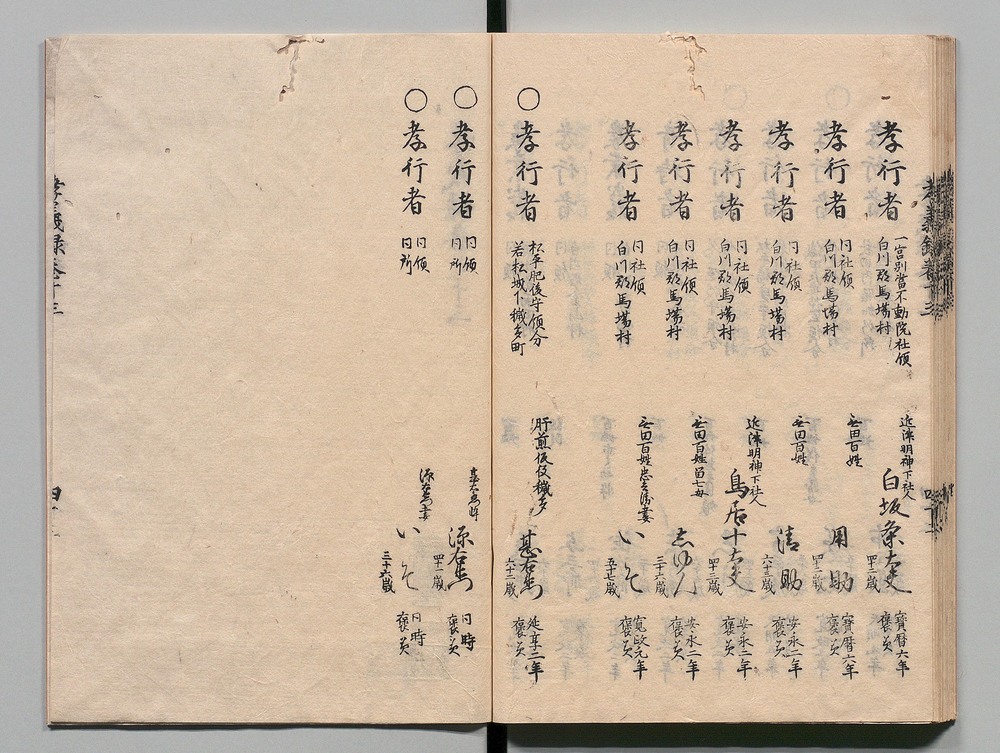 孝行者 一宮別當不動院社領 白川郡馬場村 近津明神下社人 白坂条太夫 四十二歳 寶暦六年 褒美
孝行者 同社領 白川郡馬場村 無田百姓 用助 四十二歳 寶暦六年 褒美
孝行者 同社領 白川郡馬場村 無田百姓 清助 六十三歳 安永二年 褒美
孝行者 同社領 白川郡馬場村 近津明神下社人 鳥居十太夫 安永二年 褒美
孝行者 同社領 白川郡馬場村 無田百姓 三十六歳 安永二年 褒美
孝行者 同社領 白川郡馬場村 無田百姓 五十七歳 寛政元年 褒美
○孝行者 松平肥後守領分 若松城下穢多町 肝煎仮役穢多 甚右衛門 六十二歳 延享二年 褒美
○孝行者 同領 同所 源右衛門 四十二歳 同時 褒美
○孝行者 同領 同所 源右衛門妻 いそ 三十六歳 同時 褒美
孝義録巻十三